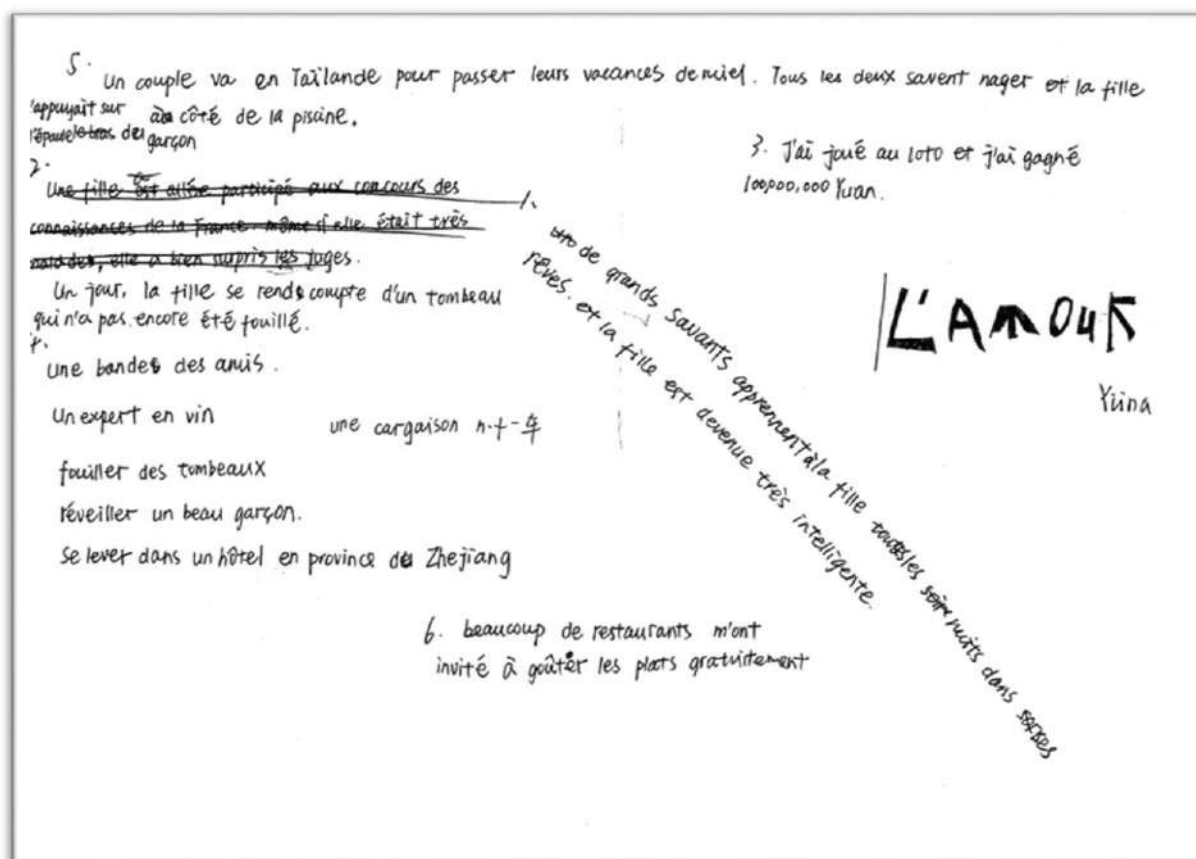 5.
Un couple va en Taïlande pour passer leurs vacances de miel. Tous les deux savent nager et la fille
s'appuyait sur
l'épaule le bras du
garçon
à côté de la piscine.
2.
Une fille est allée participé aux concours des
connaissances de la France. même si elle était très
elle a bien surpris les juges.
Un jour, la fille se rends compte d'un tombeau
qui n'a pas encore été fouillé.
4.
une bandes des amis.
Un expert en vin
une cargaison
fouiller des tombeaux
réveiller un beau garçon.
Se lever dans un hôtel en province de Zhejiang
3. J'ai joué au loto et j'ai gagné
100,000,000 Yuan.
1.
de grands savants apprennent à la fille toutes les nuits dans ses
rêves. et la fille est devenue très intelligente.
L'AMOUR
Yiina
6. beaucoup de restaurants m'ont
invité à goûter les plats gratuitement